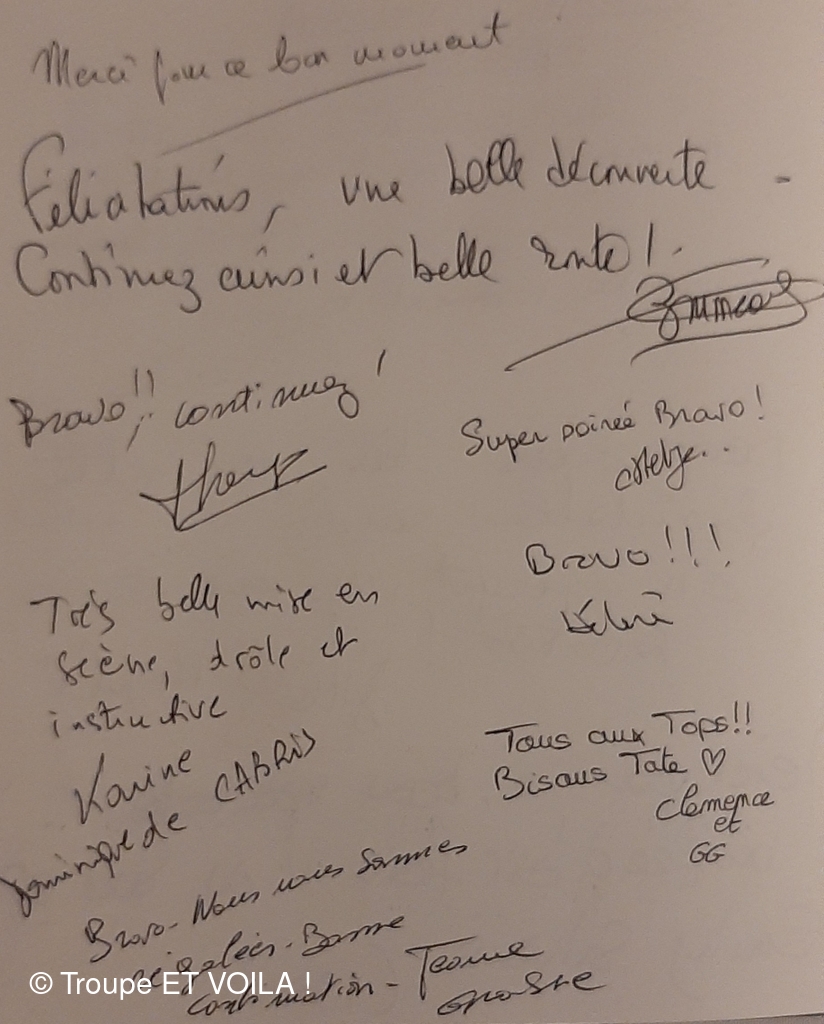 Merci pour ce bon moment
Félicitations, une belle découverte -
Continuez ainsi et belle route !
Bravo!! continuez !
Super soirée Bravo !
Bravo !!!
Très belle mise en
scène, drôle et
instructive
Karine
Dominique de CABRIS
Tous aux Tops!!
Bisous Tate ♡
Clémence
et
GG
Bravo - Nous nous sommes
régalées - Bonne
continuation - Jeanne
© Troupe ET VOILA !